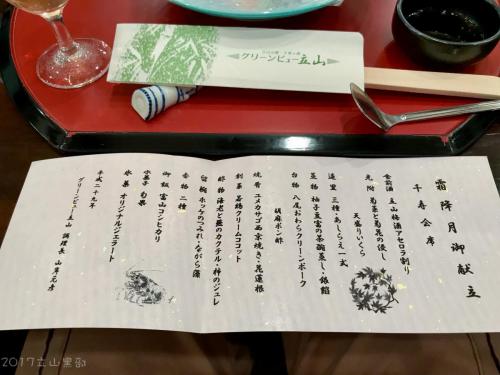 グリーンビュー立山
霜降月御献立
千寿会席
食前酒 立山梅酒アセロラ割り
先附 菊菜と菊花の浸し
天盛りいくら
造里 三種・あしらえ一式
蒸物 柚子豆富の茶碗蒸し・銀餡
台物 八尾おわらクリーンポーク
胡麻ポン酢
焼肴 ユメカサゴ西京焼き・花蓮根
割菜 若鶏クリームココット
酢物 海老と蕪のカクテル・柿のジュレ
留椀 ホッケのつみれ・ながら藻
香物 二種
御飯 富山コシヒカリ
水菓子 旬果
氷菓 オリジナルジェラート
平成二十九年
グリーンビュー立山 調理長 山岸
2017立山黒部